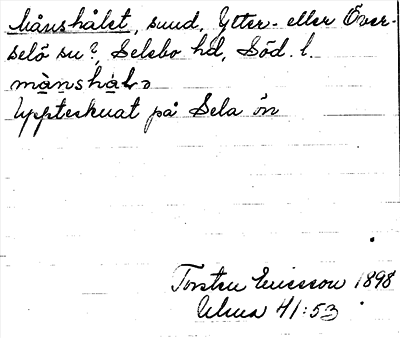 Månshålet, sund, Ytter- eller Över-
selö sn?, Selebo hd, Söd. l.
månshål
Uppteknat på Sela ön
Torsten Ericsson 1898
41:53